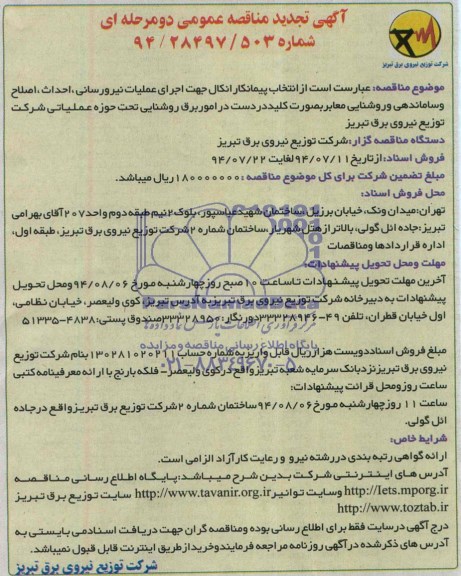 آگهی تجدید مناقصه عمومی دومرحله ای
شماره ۵۰۳/ ۹۴/۲۸۴۹۷
شرکت توزیع نیروی برق تبریز
موضوع مناقصه: عبارست است از انتخاب پیمانکار انکال جهت اجرای عملیات نیرورسانی، احداث، اصلاح
وساماندهی وروشنایی معابر بصورت کلیددردست در اموربرق روشنایی تحت حوزه عملیاتی شرکت
توزیع نیروی برق تبریز
دستگاه مناقصه گزار: شرکت توزیع نیروی برق تبریز
فروش اسناد: ازتاریخ ۹۴/۰۷/۱۱ لغایت ۹۴/۰۷/۲۲
مبلغ تضمین شرکت برای کل موضوع مناقصه: ۱۸۰۰۰۰۰۰۰ ریال میباشد.
محل فروش اسناد:
تهران: میدان ونک، خیابان برزیل، ساختمان شهید عباسپور، بلوک ۲ نیم طبقه دوم واحد ۲۰۷ آقای بهرامی
تبریز: جاده ائل گولی، بالاتر از هتل شهریار، ساختمان شماره ۲ شرکت توزیع نیروی برق تبریز، طبقه اول،
اداره قراردادها ومناقصات
مهلت ومحل تحویل پیشنهادات:
آخرین مهلت تحویل پیشنهادات تاساعت ۱۰ صبح روزچهارشنبه مورخ ۹۴/۰۸/۰۶ ومحل تحویل
پیشنهادات به دبیرخانه شرکت توزیع نیروی برق تبریزبه آدرس تبریز، کوی ولیعصر، خیابان نظامی،
اول خیابان قطران، تلفن ۴۹-۳۳۳۲۸۹۴۶ دورنگار: ۳۳۳۲۸۹۵۰ صندوق پستی: ۴۸۳۸-۵۱۳۳۵
مبلغ فروش اسناددویست هزارریال قابل واریزبه شماره حساب ۱۳۰۲۸۱۰۲۰۲۱۱ بنام شرکت توزیع
نیروی برق تبریزنزدبانک سرمایه شعبه تبریزواقع درکوی ولیعصر- فلکه بارنج با ارائه معرفینامه کتبی
ساعت روزومحل قرائت پیشنهادات:
ساعت ۱۱ روزچهارشنبه مورخ ۹۴/۰۸/۰۶ ساختمان شماره ۲ شرکت توزیع برق تبریزواقع درجاده
ائل گولی.
شرایط خاص:
ارائه گواهی رتبه بندی دررشته نیرو و رعایت کارآزاد الزامی است.
آدرس های اینترنتی شرکت بدین شرح میباشد: پایگاه اطلاع رسانی مناقصه
http://Iets.mporg.ir وسایت توانیر http://www.tavanir.org.ir سایت توزیع برق تبریز
http://www.toztab.ir
درج آگهی درسایت فقط برای اطلاع رسانی بوده ومناقصه گران جهت دریافت اسنادمی بایستی به
آدرس های ذکرشده درآگهی روزنامه مراجعه فرمایندوخریدازطریق اینترنت قابل قبول نمیباشد.
شرکت توزیع نیروی برق تبریز
پایگاه اطلاع رسانی مناقصه و مزایده
۰۲۱-۸۸۳۴۹۶۷۰-۵